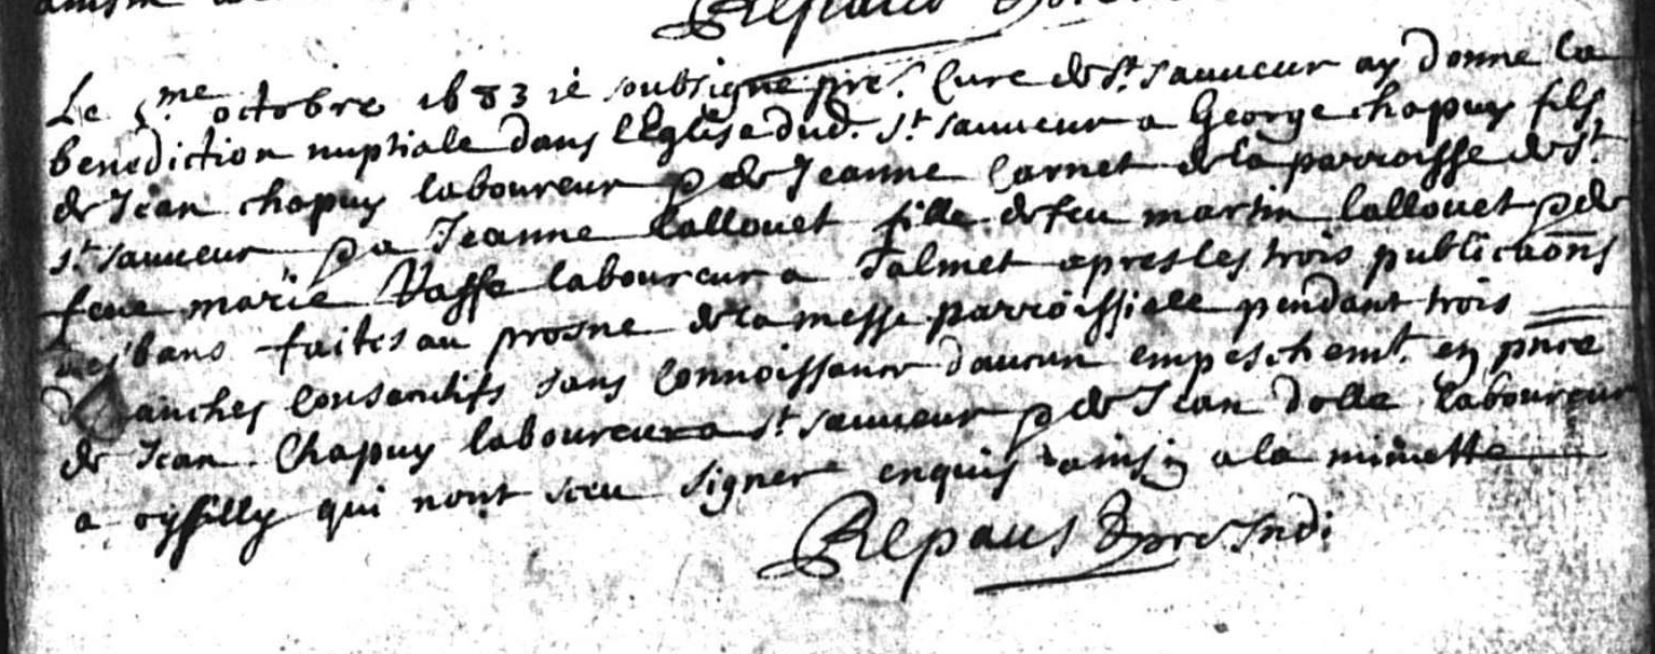 Le 5.me octobre 1683 ie soubsigne pre. Cure de St. Sauueur ay donne la
benediction nuptiale dans l'Eglise dud. St Sauueur a George chapuy fils
de Jean chapuy laboureur & de Jeanne Carnet de la parroisse de St.
St. Sauueur & a Jeanne lallouet fille de feu martin lallouet & de
feue marie Vasse laboureur a Talmet apres les trois publicaons
des bans faites au prosne de la messe parroissiale pendant trois
anches consecutifs sans connoissance daucun empeschemt. en pnce
de Jean Chapuy laboureur a St Sauueur & de Jean dolle laboureur
a oysilly qui nont sceu signer enquis ainsy a la minutte
Repaus pre Indi